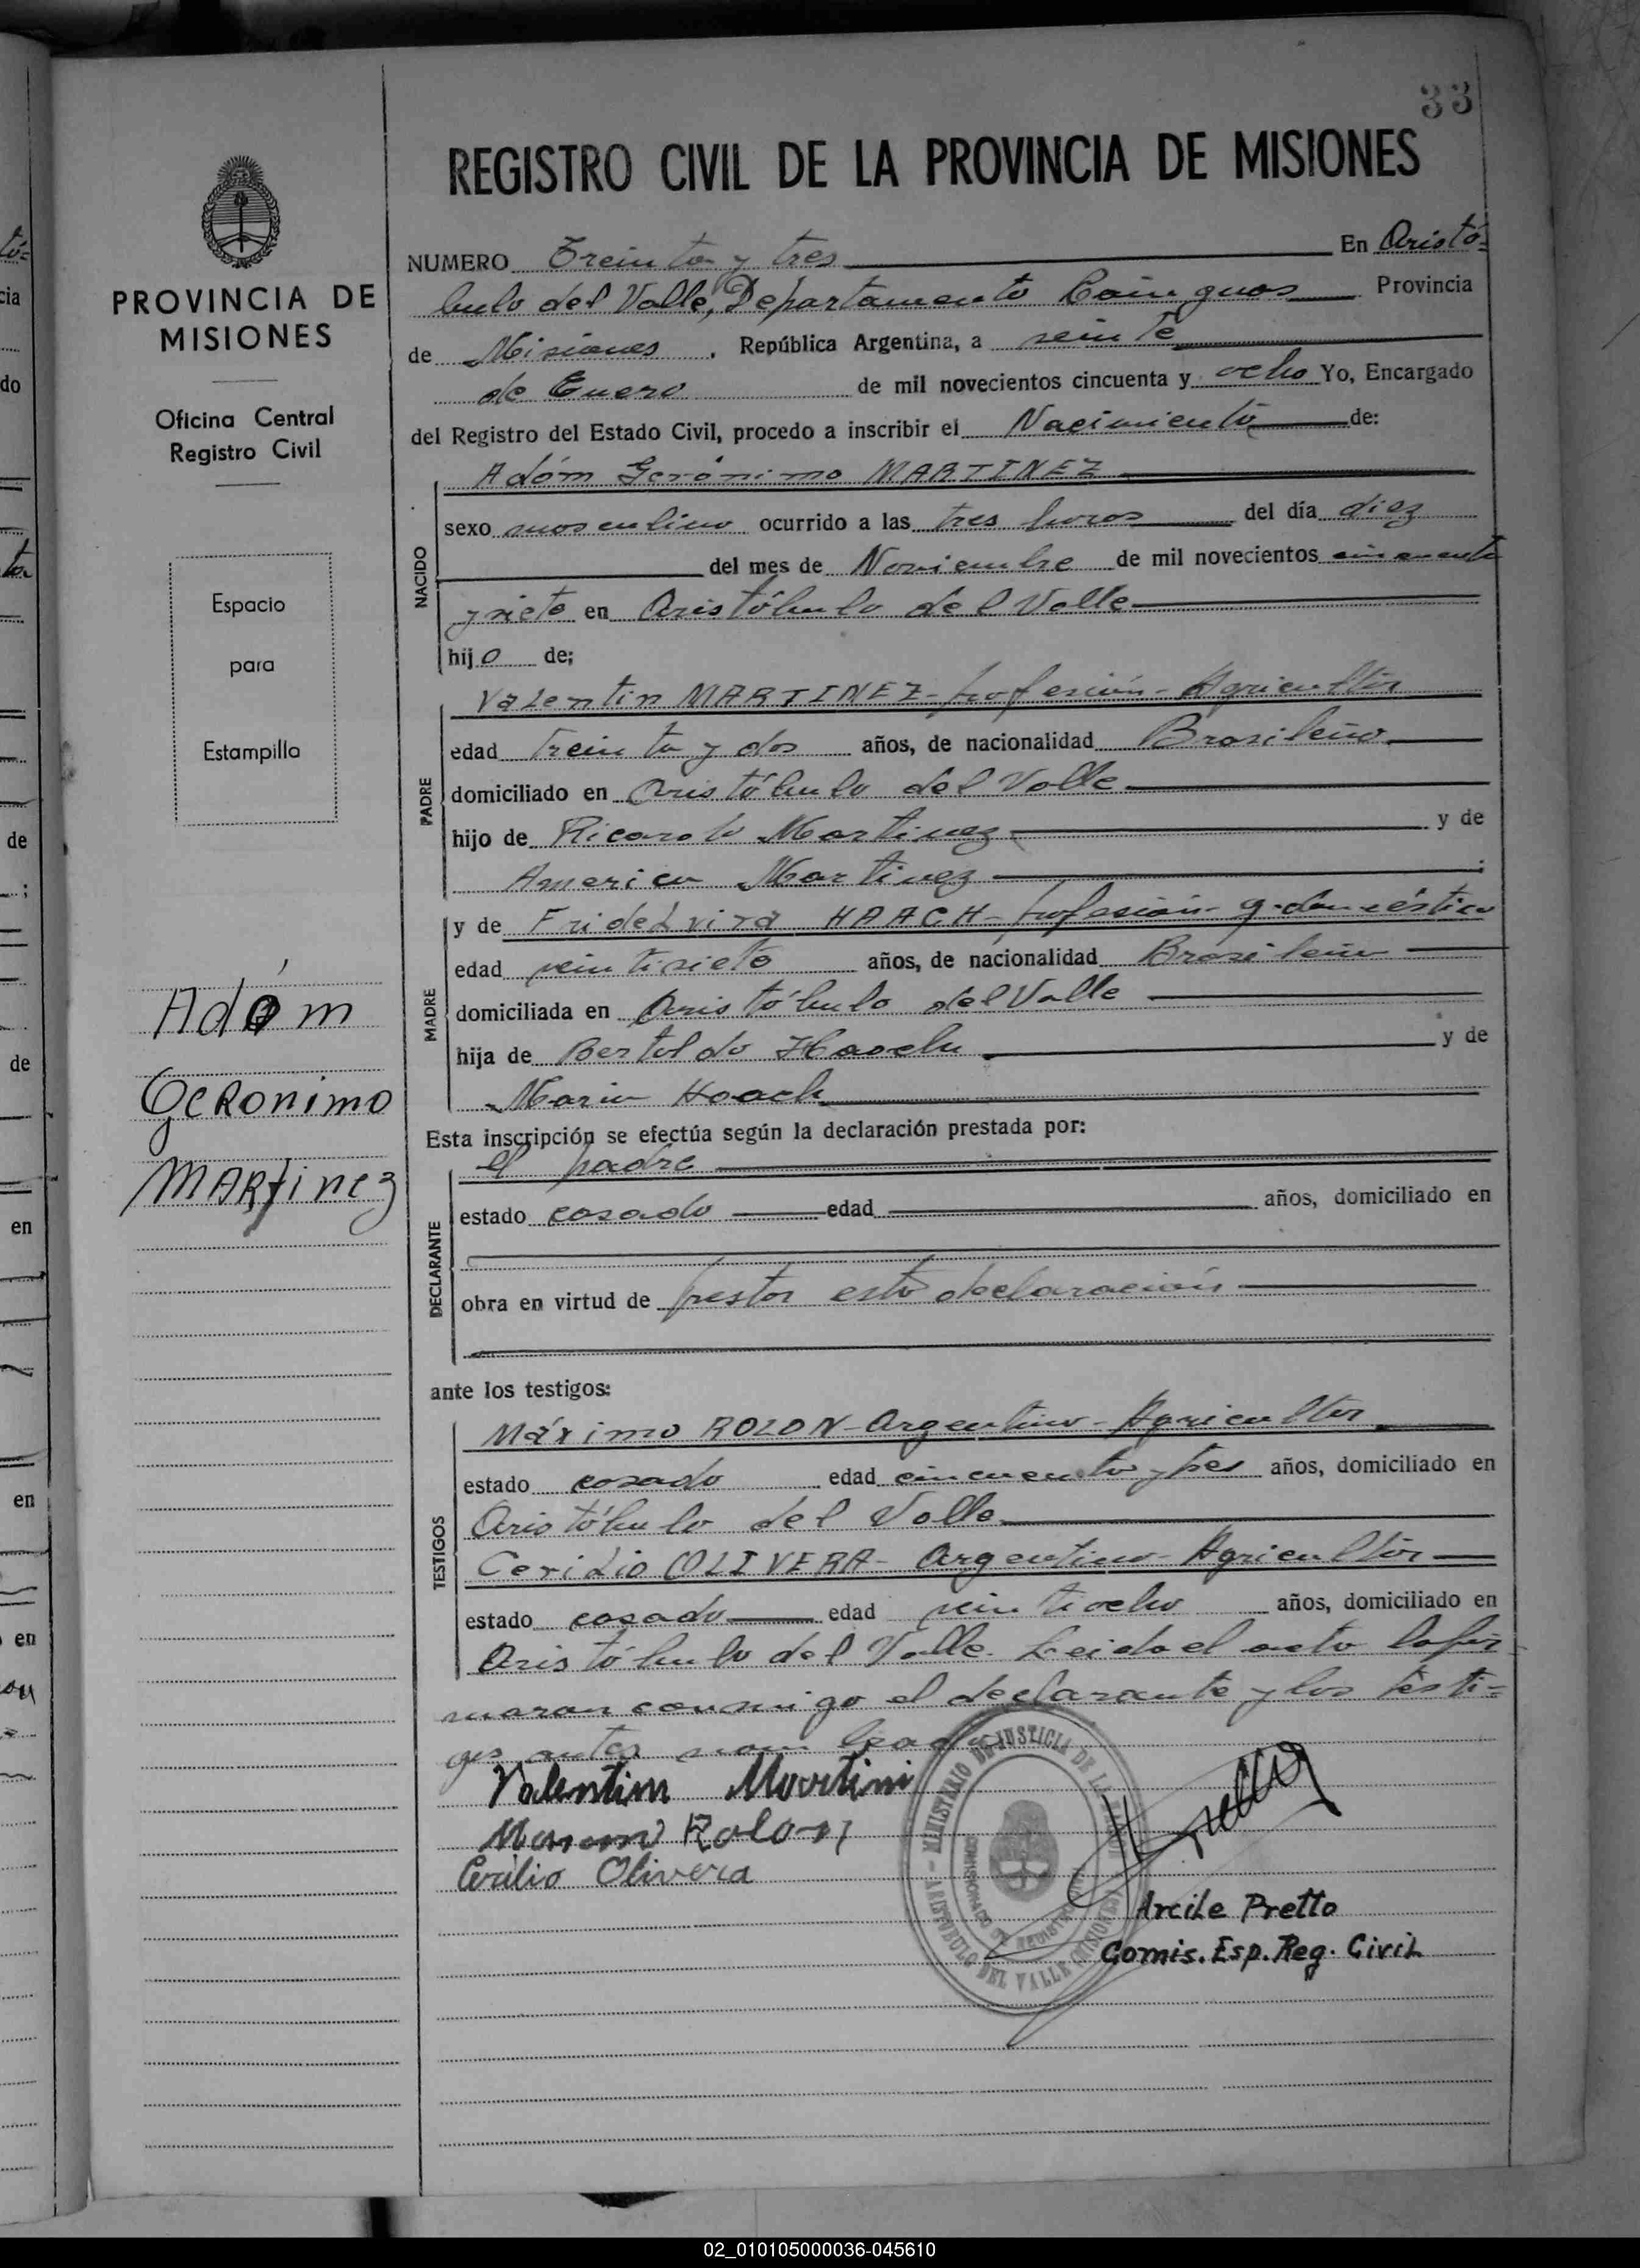 33
REGISTRO CIVIL DE LA PROVINCIA DE MISIONES
PROVINCIA DE
MISIONES
Oficina Central
Registro Civil
Espacio
para
Estampilla
Adóm
Geronimo
Martinez
NUMERO Treinta y tres En Aristó-
bulo del Valle, Departamento Cainguas Provincia
de Misiones , República Argentina, a veinte
de Enero de mil novecientos cincuenta y ocho Yo, Encargado
del Registro del Estado Civil, procedo a inscribir el Nacimiento de:
NACIDO
Adóm Gerónimo MARTINEZ
sexo masculino ocurrido a las tres horas del día diez
del mes de Noviembre de mil novecientos cincuenta
y siete en Aristóbulo del Valle
hijo de;
PADRE
Valentin MARTINEZ - profesión - Agricultor
edad treinta y dos años, de nacionalidad Brasileño
domiciliado en Aristóbulo del Valle
hijo de Ricardo Martinez y de
America Martinez ;
MADRE
y de Fridelvira HAACH - profesión - q. doméstico
edad veintisiete años, de nacionalidad Brasileña
domiciliada en Aristóbulo del Valle
hija de Bertoldo Haach y de
Maria Haach
Esta inscripción se efectúa según la declaración prestada por:
DECLARANTE
el padre
estado casado edad años, domiciliado en
obra en virtud de prestar esta declaración
ante los testigos:
TESTIGOS
Máximo ROLON - Argentino - Agricultor
estado casado edad cincuenta y tres años, domiciliado en
Aristóbulo del Valle
Cerilio OLIVERA - Argentino - Agricultor
estado casado edad veintiocho años, domiciliado en
Aristóbulo del Valle. Leida el acta la fir
maran conmigo el declarante y los testi-
gos antes nombrados
Valentim Martini
Rolon
Cerilio Olivera
MINISTERIO DE JUSTICIA DE LA
ARISTOBULO DEL VALLE (MISIONES)
Arcile Pretto
Comis. Esp. Reg. Civil
cia
do
de
de
en
en
en
02_010105000036-045610